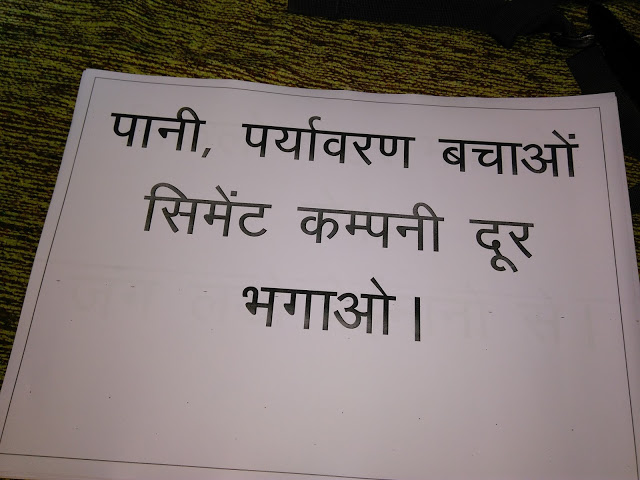 पानी, पर्यावरण बचाओं
सिमेंट कम्पनी दूर
भगाओ।